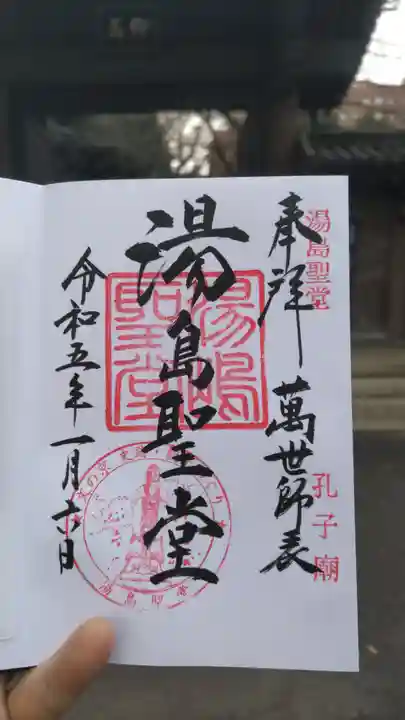 湯島聖堂
孔子廟
奉拝 萬世師表
湯島聖堂
湯嶋聖堂
令和五年一月六日
湯島聖堂